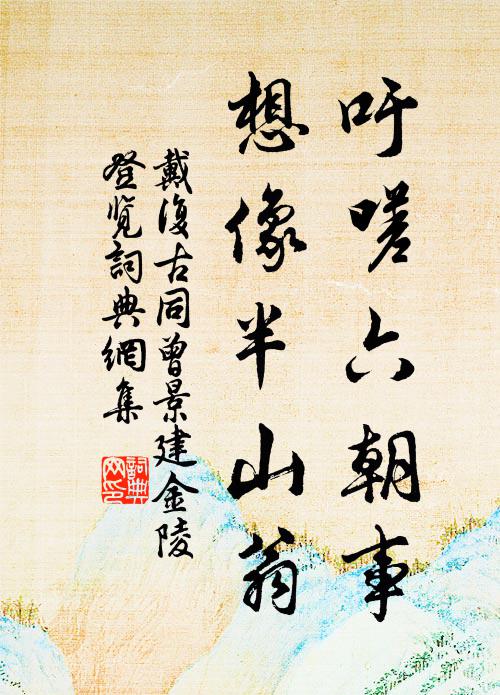 吁嗟六朝事
想像半山翁
戴復古同曾景建金陵
登览詞典網集
詞典
网印